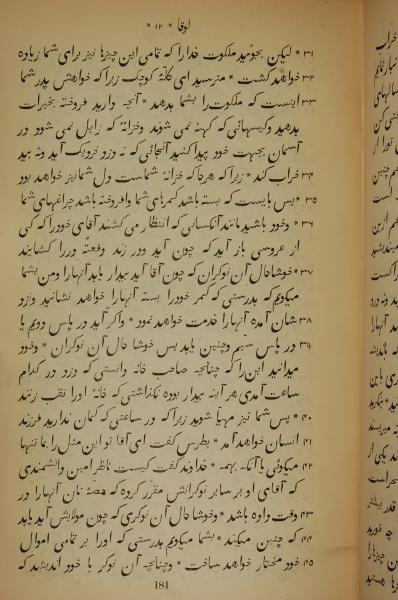 لوقا * ۱۲ *
۳۱ * لیکن بجوئید ملکوت خدا را که تمامی این چیزها نیز برای شما زیاده
۳۲ خواهد گشت * مترسید ای گلهٔ کوچک زیرا که خواهش پدر شما
۳۳ اینست که ملکوت را بشما بدهد * آنچه دارید فروخته بخیرات
بدهید و کیسهائی که کهنه نمی شوند و خزانهٔ که زایل نمی شود در
آسمان بجهت خود پیدا کنید آنجائی که نه دزد نزدیک آید و نه بید
۳۴ خراب کند * زیرا که هر جا که خزانهٔ شماست دل شما نیز خواهد بود
۳۵ * پس بایست که بسته باشد کمرهای شما و افروخته باشد چراغهای شما
۳۶ * و خود باشید مانند آنکسانی که انتظار می کشند آقای خود را که کی
از عروسی باز آید که چون آید و در زند دفعتهً در را کشایند
۳۷ * خوشا حال آن نوکران که چون آقا آید بیدار یابد آنها را و من بشما
میگویم که بدرستی که کمر خود را بسته آنها را خواهد نشانید و نزد
۳۸ شان آمده آنها را خدمت خواهد نمود * و اگر آید در پاس دویم یا
۳۹ در پاس سیم و چنین یابد پس خوشا حال آن نوکران * و خود
میدانید این را که چنانچه صاحب خانه دانستی که دزد در کدام
ساعت آمدی هر آینه بیدار بوده نگذاشتی که خانهٔ او را نقب زنند
۴۰ * پس شما نیز مهیا شوید زیرا که در ساعتی که گمان ندارید فرزند
۴۱ انسان خواهد آمد * پطرس گفت ای آقا تو این مثل را بما تنها
۴۲ میگوئی یا آنکه بهمه * خداوند گفت کیست ناظر امین و دانشمندی
که آقای او بر سایر نوکرانش مقرر کرده که حصهٔ نان آنها را در
۴۳ وقت داده باشد * و خوشا حال آن نوکری که چون مولایش آید یابد
۴۴ که چنین میکند * بشما میگویم بدرستی که او را بر تمامی اموال
۴۵ خود مختار خواهد ساخت * و چنانچه آن نوکر با خود اندیشد که
181